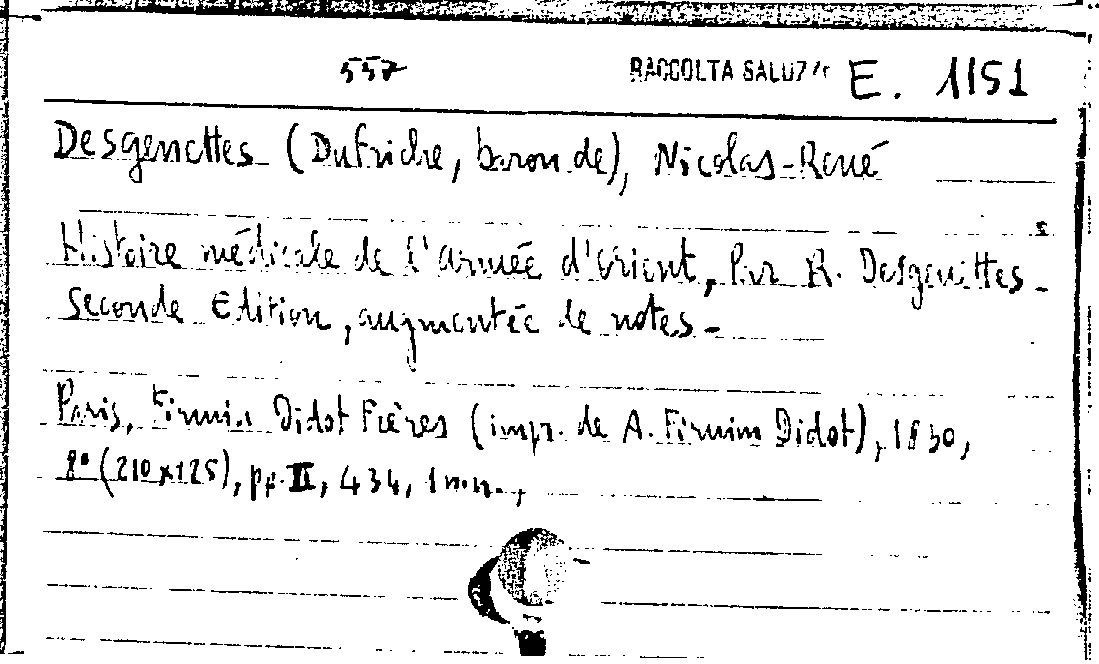 557 RACCOLTA SALUZZO E. 1151
Desgenettes (Dufriche, baron de), Nicolas-René
Histoire médicale de l'armée d'orient, Par R. Desgenettes -
Seconde Edition, augmentée de notes -
Paris, Firmin Didot Frères (impr. de A. Firmin Didot), 1830,
8° (210x125), pp. II, 434, 1 nn.,